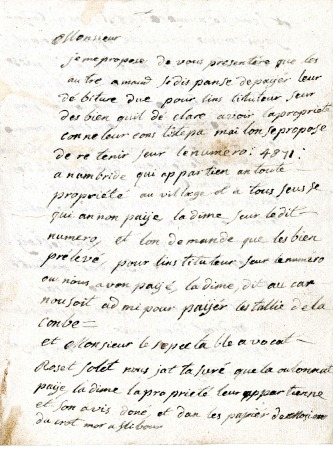 Monsieur
je me propose de vous presentére que les
au tre a maud se dis panse de païer leur
de biture due pour lins titulteur seur
des bien quil dé clare avoir lapropriete
con ne leur cons liste pa mai lon se propose
de re tenir seur le numero: 4971:
a nambride qui appartien antoute
propriété au village et a tous seus se
qui an non païje la dime seur le dit
numero, et lon de mande que les bien
prelevé, pour lins tituteur seur le numero
ou nous avon païjé la dime, dit au ca
nou soit ad mi pour païjer les tallie de la
conbe
et Monsieur le repecta ble avocat
Roset Solet nous jat tasuré que la
païje la dime la propriété leur appartienne
et son avis doné, et dan les papier de
du crot mor